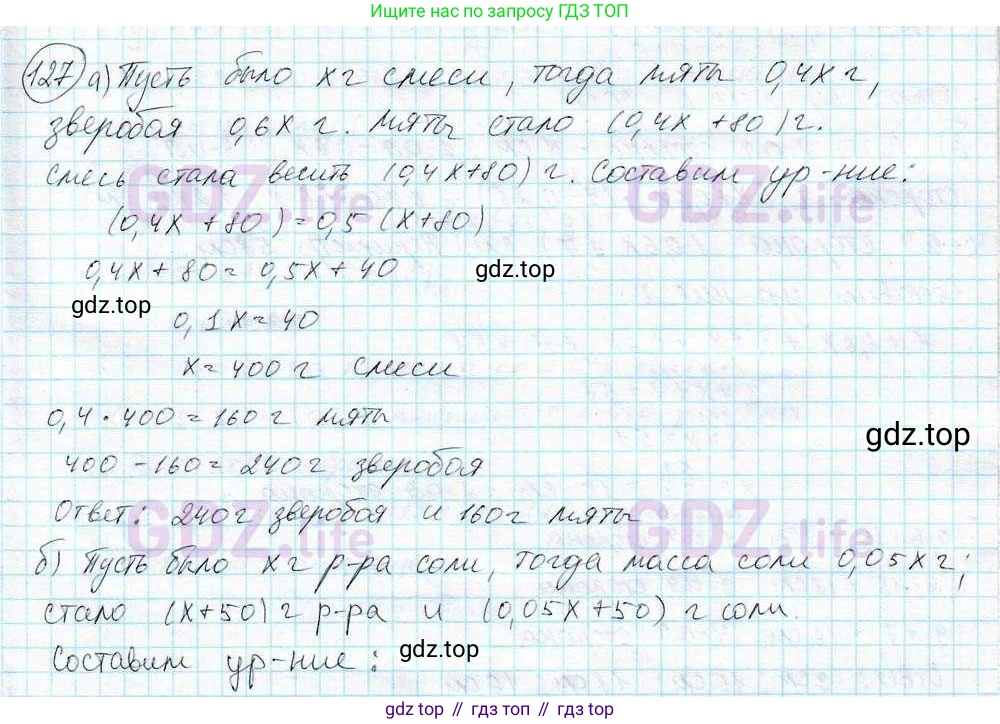 Ищите нас по запросу ГДЗ ТОП
127 а) Пусть было х г смеси, тогда мяты 0,4х г,
зверобоя 0,6х г. Мяты стало (0,4х + 80) г.
Смесь стала весить (0,4х+80) г. Составим ур-ние:
GDZ.life GDZ.life
(0,4х + 80) = 0,5 (х+80)
0,4х + 80 = 0,5х + 40
gdz.top
gdz.top
0,1х = 40
х = 400 г смеси
0,4 · 400 = 160 г мяты
gdz.top
400 - 160 = 240 г зверобоя
Ответ: 240 г зверобоя и 160 г мяты
GDZ.life GDZ.life
б) Пусть было х г р-ра соли, тогда масса соли 0,05х г;
стало (х+50) г р-ра и (0,05х+50) г соли.
Составим ур-ние:
gdz.top
gdz top // гдз топ // gdz top